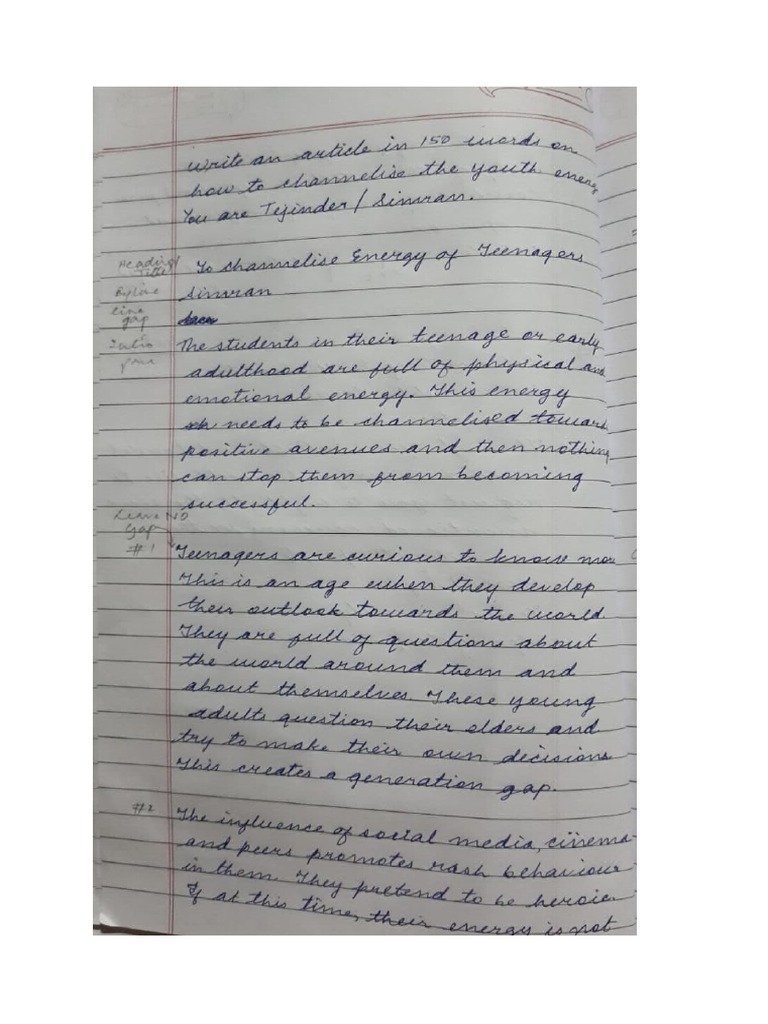 write an article in 150 words on
how to channelise the youth energy
You are Tejinder / Simran.
Heading/
Title
To Channelise Energy of Teenagers
Byline
Simran
line
gap
Intro
para
The students in their teenage or early
adulthood are full of physical and
emotional energy. This energy
needs to be channelised toward
positive avenues and then nothing
can stop them from becoming
successful.
Leave NO
Gap
#1
Teenagers are curious to know mor
This is an age when they develop
their outlook towards the world.
They are full of questions about
the world around them and
about themselves. These young
adults question their elders and
try to make their own decisions
This creates a generation gap.
#2
The influence of social media, cinema
and peers promotes rash behaviour
in them. They pretend to be heroic.
If at this time, their energy is not